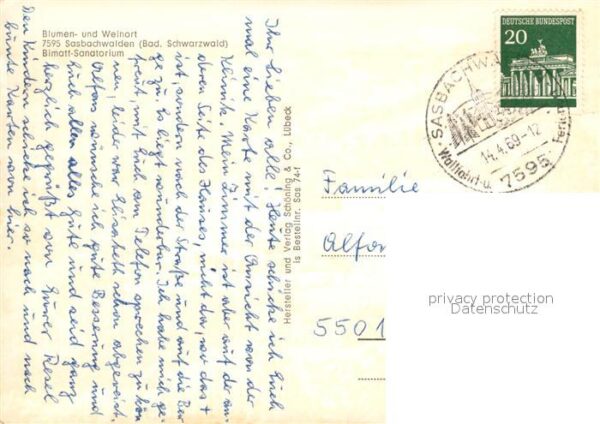 Blumen- und Weinort
7595 Sasbachwalden (Bad. Schwarzwald)
Bimatt-Sanatorium
Ihr Lieben alle! Heute schicke ich Euch
mal eine Karte mit der Ansicht von der
Klinik. Mein Zimmer ist aber auf der an-
deren Seite des Hauses, nicht da, wo das +
ist, sondern nach der Straße und auf die Ber
ge zu. Es liegt wunderbar. Ich habe mich ge-
freut, mit Euch am Telefon sprechen zu kön
nen, leider war Elisabeth schon abgereist.
Alfons wünsche ich gute Besserung und
Euch allen alles Gute und seid ganz
herzlich gegrüßt von Eurer Resel
Den Kindern schicke ich so nach und nach
bunte Karten von hier.
Hersteller und Verlag Schöning & Co., Lübeck
is Bestellnr. Sas 74-f
DEUTSCHE BUNDESPOST
20
SASBACHWA
14.4.69-12
Wallfahrt-u.
7595
Familie
Alfon
5501
privacy protection
Datenschutz